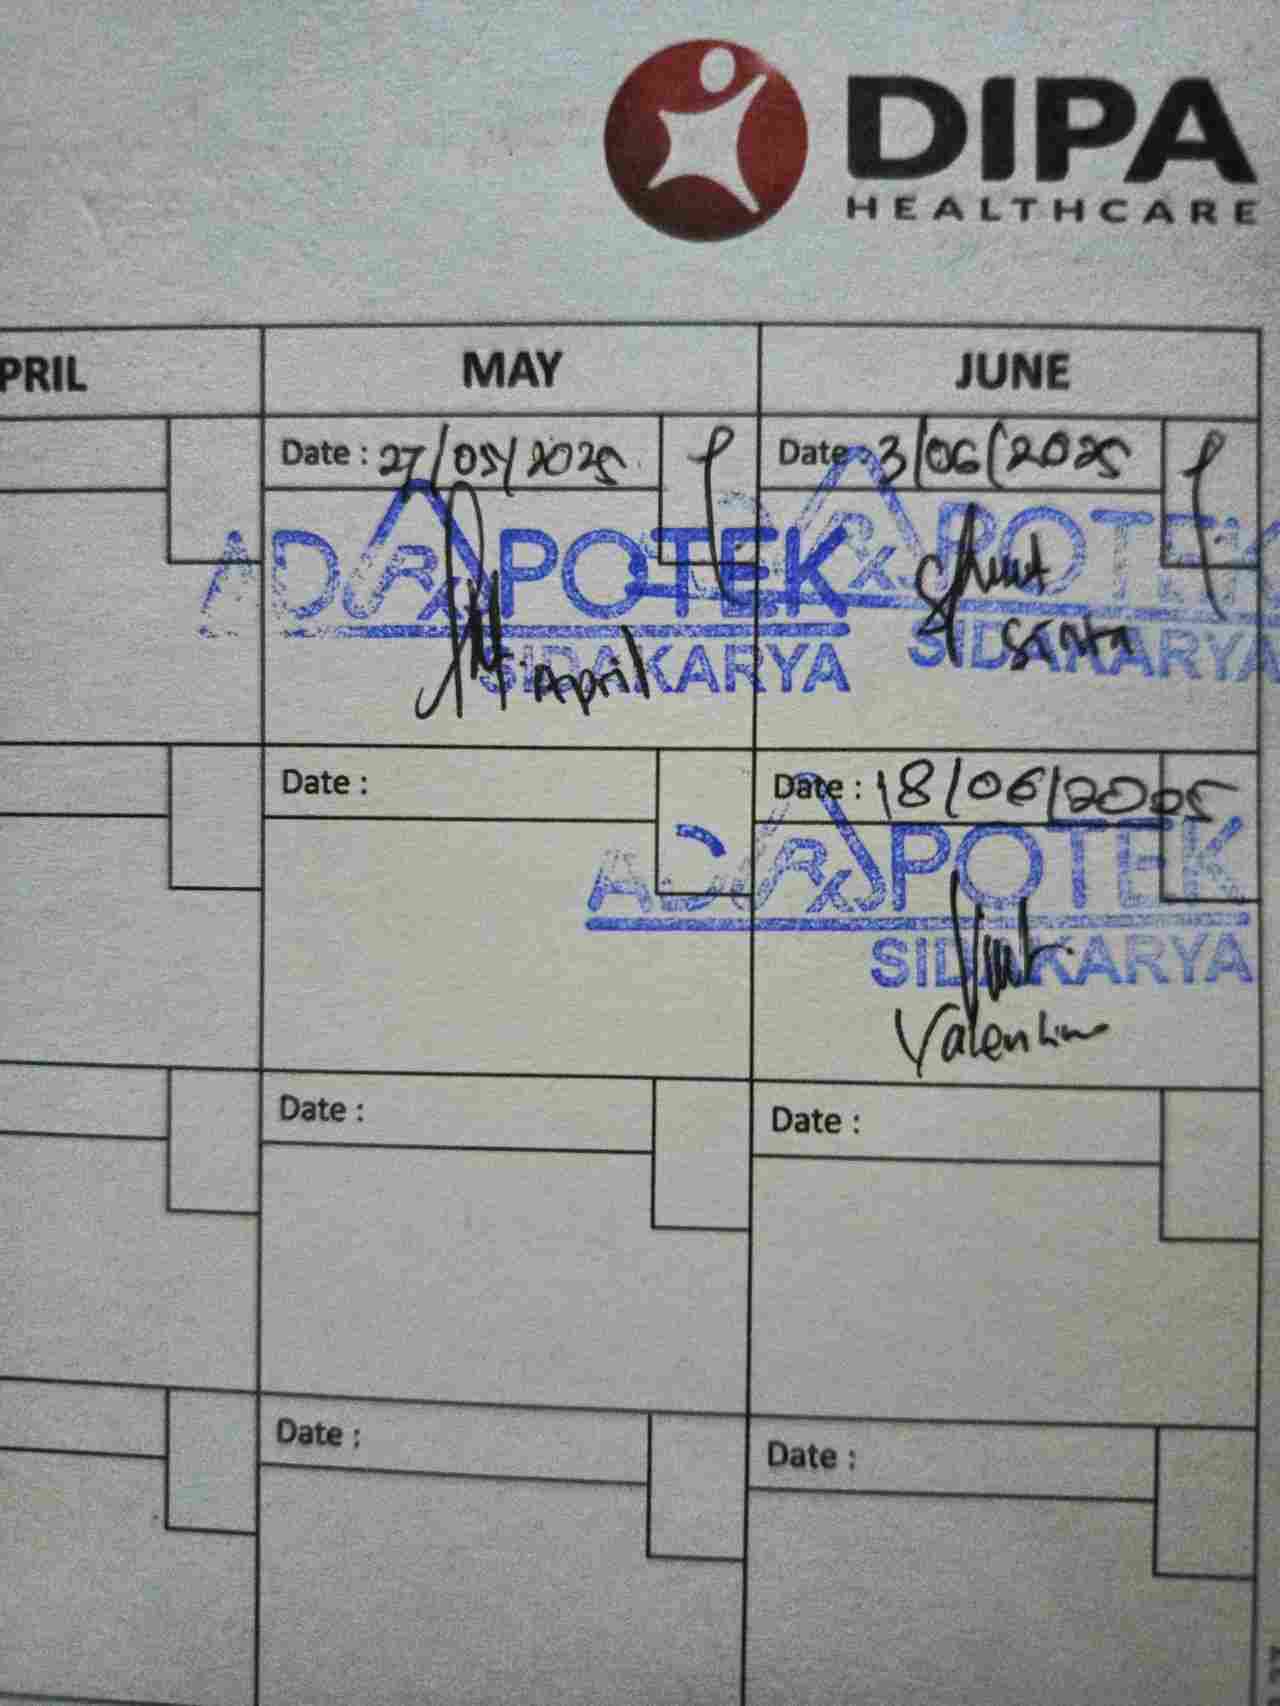 DIPA
HEALTHCARE
PRIL
MAY
JUNE
Date : 27/05/2025
Date : 3/06/2025
ADA APOTEK
SIDAKARYA
April
ADA APOTEK
SIDAKARYA
Sinta
Date :
Date : 18/06/2025
ADA APOTEK
SIDAKARYA
Valentina
Date :
Date :
Date :
Date :